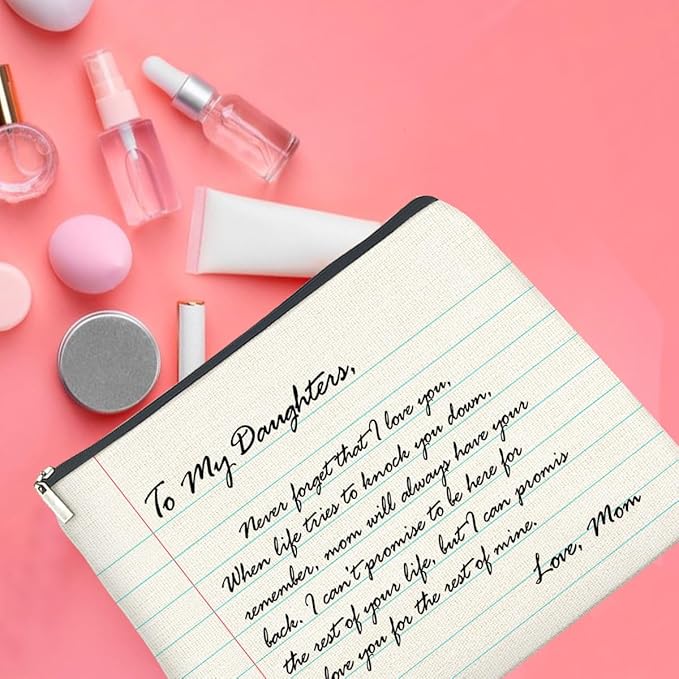 To My Daughters,
Never forget that I love you,
When life tries to knock you down,
remember, mom will always have your
back. I can't promise to be here for
the rest of your life, but I can promis
love you for the rest of mine.
Love, Mom